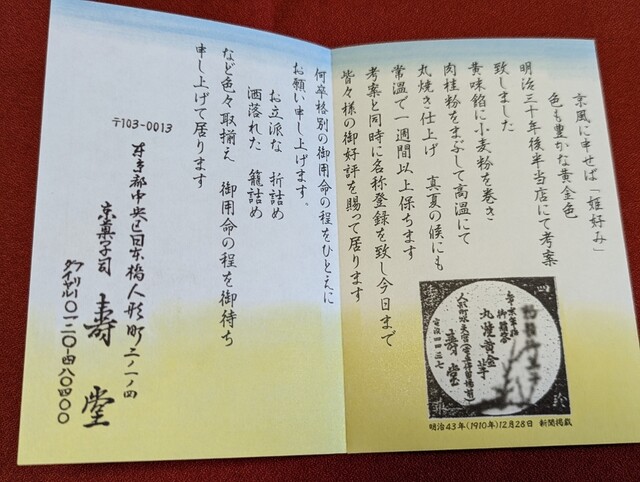 京風に申せば「姫好み」
色も豊かな黄金色
明治三十年後半当店にて考案
致しました
黄味餡に小麦粉を巻き
肉桂粉をまぶして高温にて
丸焼き仕上げ 真夏の候にも
常温で一週間以上保ちます
考案と同時に名称登録を致し今日まで
皆々様の御好評を賜って居ります
丸焼黄金芋
壽堂
明治43年(1910年)12月28日 新聞掲載
何卒格別の御用命の程をひとえに
お願い申し上げます。
お立派な 折詰め
洒落れた 籠詰め
など色々取揃え 御用命の程を御待ち
申し上げて居ります
〒103-0013
東京都中央区日本橋人形町二ノ一ノ四
京菓子司 壽堂
フリーダイヤル〇一二〇-四八〇四〇〇